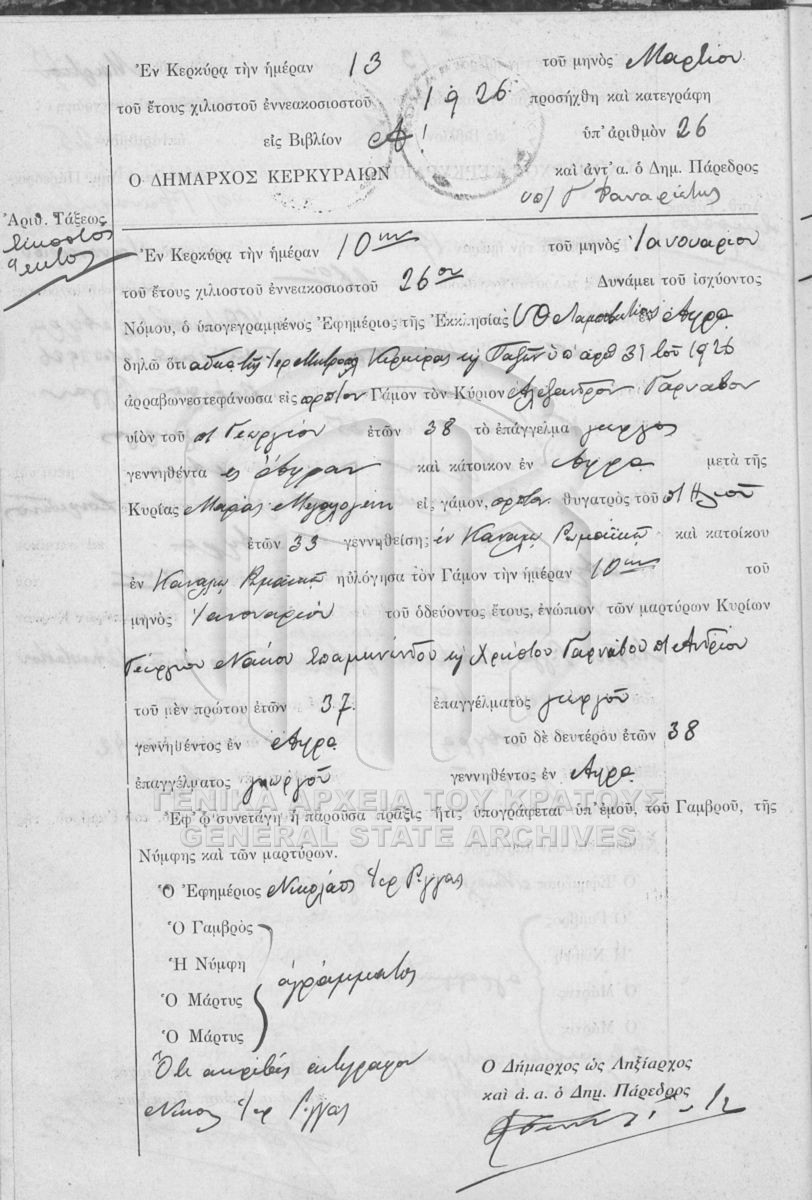 Ἐν Κερκύρᾳ τὴν ἡμέραν 13 τοῦ μηνὸς Μαρτίου
τοῦ ἔτους χιλιοστοῦ ἐννεακοσιοστοῦ 1926 προσήχθη καὶ κατεγράφη
εἰς Βιβλίον Α! ὑπ' ἀριθμὸν 26
Ο ΔΗΜΑΡΧΟΣ ΚΕΡΚΥΡΑΙΩΝ καὶ ἀντ' α. ὁ Δημ. Πάρεδρος
Ἀριθ. Τάξεως
Εἰκοστὸς
ἕκτος
Ἐν Κερκύρᾳ τὴν ἡμέραν 10ην τοῦ μηνὸς Ἰανουαρίου
τοῦ ἔτους χιλιοστοῦ ἐννεακοσιοστοῦ 26ου Δυνάμει τοῦ ἰσχύοντος
Νόμου, ὁ ὑπογεγραμμένος Ἐφημέριος τῆς Ἐκκλησίας ἐν Αγρῷ
δηλῶ ὅτι ἀδείᾳ τῆς Ἱερ Μητροπ Κερκύρας κ Παξῶν ὑπ ἀριθ 31 τοῦ 1926
ἀρραβωνεστεφάνωσα εἰς πρῶτον Γάμον τὸν Κύριον Αλέξανδρον Γαρνάβον
υἱὸν τοῦ Γεωργίου ἐτῶν 38 τὸ ἐπάγγελμα γεωργὸς
γεννηθέντα εἰς Αγρὸν καὶ κάτοικον ἐν Αγρῷ μετὰ τῆς
Κυρίας Μαρίας εἰς γάμον, πρῶτον θυγατρὸς τοῦ Ηλιοῦ
ἐτῶν 33 γεννηθείσης ἐν καὶ κατοίκου
ἐν ηὐλόγησα τὸν Γάμον τὴν ἡμέραν 10ην τοῦ
μηνὸς Ἰανουαρίου τοῦ ὁδεύοντος ἔτους, ἐνώπιον τῶν μαρτύρων Κυρίων
Γεωργίου Νάκου Επαμινόντου κ Χρήστου Γαρνάβου Ανδρίου
τοῦ μὲν πρώτου ἐτῶν 37. ἐπαγγέλματος γεωργοῦ
γεννηθέντος ἐν Αγρῷ τοῦ δὲ δευτέρου ἐτῶν 38
ἐπαγγέλματος γεωργοῦ γεννηθέντος ἐν Αγρῷ
ΓΕΝΙΚΑ ΑΡΧΕΙΑ ΤΟΥ ΚΡΑΤΟΥΣ
Ἐφ' ᾧ συνετάγη ἡ παροῦσα πρᾶξις ἥτις ὑπογράφεται ὑπ' ἐμοῦ, τοῦ Γαμβροῦ, τῆς
GENERAL STATE ARCHIVES
Νύμφης καὶ τῶν μαρτύρων.
Ὁ Ἐφημέριος Νικόλαος Ἱερ Ρίγγας
Ὁ Γαμβρὸς
Ἡ Νύμφη
ἀγράμματος
Ὁ Μάρτυς
Ὁ Μάρτυς
Ὅτι ἀκριβὲς ἀντίγραφον
Ἱερ Ρίγγας
Ὁ Δήμαρχος ὡς Ληξίαρχος
καὶ ἀ. α. ὁ Δημ. Πάρεδρος